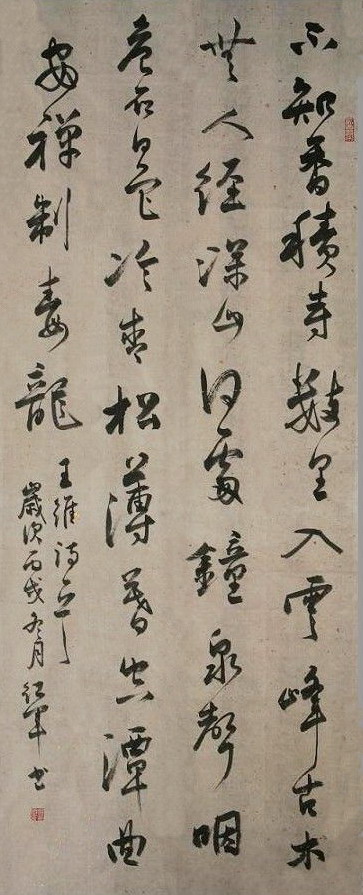 不知香積寺數里入雲峰古木
無人徑深山何處鐘泉聲咽
危石日色冷青松薄暮空潭曲
安禪制毒龍
王維詩一首
歲次丙戌冬月紅軍書